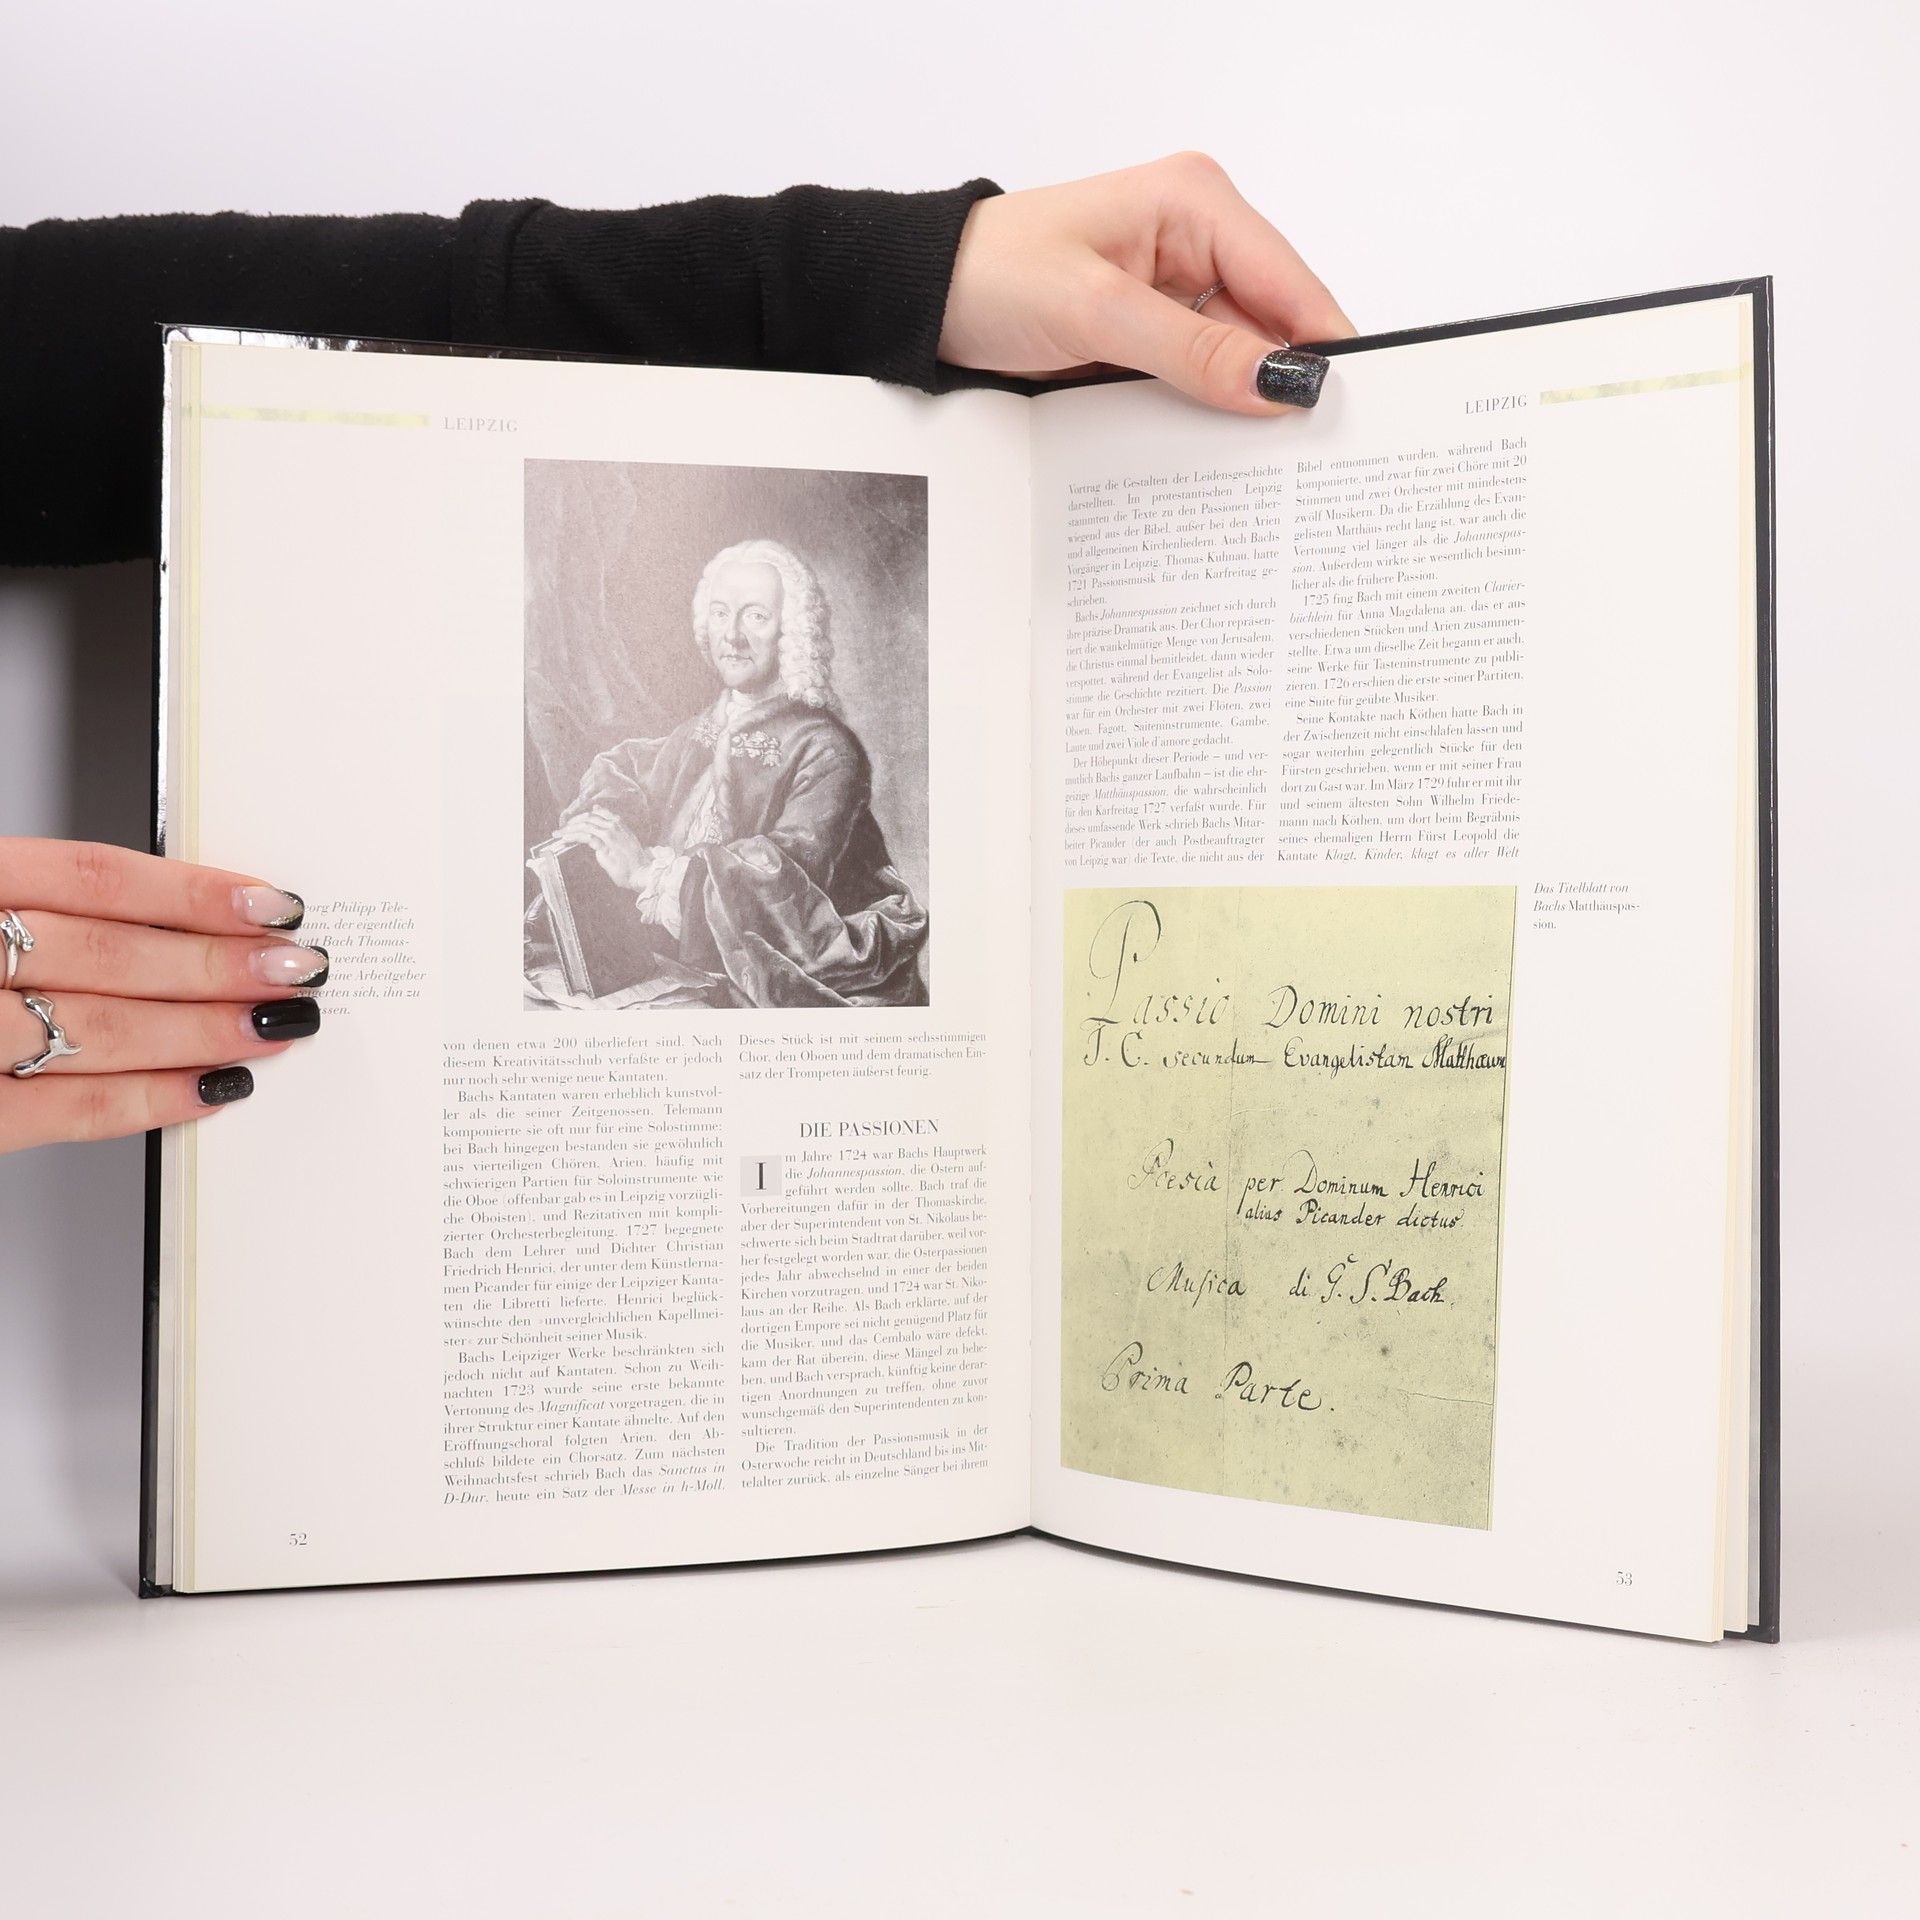 LEIPZIG
org Philipp Tele-
ann, der eigentlich
statt Bach Thomas-
werden sollte,
eine Arbeitgeber
eigerten sich, ihn zu
ssen.
von denen etwa 200 überliefert sind. Nach
diesem Kreativitätsschub verfaßte er jedoch
nur noch sehr wenige neue Kantaten.
Bachs Kantaten waren erheblich kunstvol-
ler als die seiner Zeitgenossen. Telemann
komponierte sie oft nur für eine Solostimme;
bei Bach hingegen bestanden sie gewöhnlich
aus vierteiligen Chören, Arien, häufig mit
schwierigen Partien für Soloinstrumente wie
die Oboe (offenbar gab es in Leipzig vorzügli-
che Oboisten), und Rezitativen mit kompli-
zierter Orchesterbegleitung. 1727 begegnete
Bach dem Lehrer und Dichter Christian
Friedrich Henrici, der unter dem Künstlerna-
men Picander für einige der Leipziger Kanta-
ten die Libretti lieferte. Henrici beglück-
wünschte den »unvergleichlichen Kapellmei-
ster« zur Schönheit seiner Musik.
Bachs Leipziger Werke beschränkten sich
jedoch nicht auf Kantaten. Schon zu Weih-
nachten 1723 wurde seine erste bekannte
Vertonung des Magnificat vorgetragen, die in
ihrer Struktur einer Kantate ähnelte. Auf den
Eröffnungschoral folgten Arien, den Ab-
schluß bildete ein Chorsatz. Zum nächsten
Weihnachtsfest schrieb Bach das Sanctus in
D-Dur, heute ein Satz der Messe in h-Moll.
Dieses Stück ist mit seinem sechsstimmigen
Chor, den Oboen und dem dramatischen Ein-
satz der Trompeten äußerst feurig.
DIE PASSIONEN
Im Jahre 1724 war Bachs Hauptwerk
die Johannespassion, die Ostern auf-
geführt werden sollte. Bach traf die
Vorbereitungen dafür in der Thomaskirche,
aber der Superintendent von St. Nikolaus be-
schwerte sich beim Stadtrat darüber, weil vor-
her festgelegt worden war, die Osterpassionen
jedes Jahr abwechselnd in einer der beiden
Kirchen vorzutragen, und 1724 war St. Niko-
laus an der Reihe. Als Bach erklärte, auf der
dortigen Empore sei nicht genügend Platz für
die Musiker, und das Cembalo wäre defekt,
kam der Rat überein, diese Mängel zu behe-
ben, und Bach versprach, künftig keine derar-
tigen Anordnungen zu treffen, ohne zuvor
wunschgemäß den Superintendenten zu kon-
sultieren.
Die Tradition der Passionsmusik in der
Osterwoche reicht in Deutschland bis ins Mit-
telalter zurück, als einzelne Sänger bei ihrem
52
LEIPZIG
Vortrag die Gestalten der Leidensgeschichte
darstellten. Im protestantischen Leipzig
stammten die Texte zu den Passionen über-
wiegend aus der Bibel, außer bei den Arien
und allgemeinen Kirchenliedern. Auch Bachs
Vorgänger in Leipzig, Thomas Kuhnau, hatte
1721 Passionsmusik für den Karfreitag ge-
schrieben.
Bachs Johannespassion zeichnet sich durch
ihre präzise Dramatik aus. Der Chor repräsen-
tiert die wankelmütige Menge von Jerusalem,
die Christus einmal bemitleidet, dann wieder
verspottet, während der Evangelist als Solo-
stimme die Geschichte rezitiert. Die Passion
war für ein Orchester mit zwei Flöten, zwei
Oboen, Fagott, Saiteninstrumente, Gambe,
Laute und zwei Viole d'amore gedacht.
Der Höhepunkt dieser Periode – und ver-
mutlich Bachs ganzer Laufbahn – ist die ehr-
geizige Matthäuspassion, die wahrscheinlich
für den Karfreitag 1727 verfaßt wurde. Für
dieses umfassende Werk schrieb Bachs Mitar-
beiter Picander (der auch Postbeauftragter
von Leipzig war) die Texte, die nicht aus der
Bibel entnommen wurden, während Bach
komponierte, und zwar für zwei Chöre mit 20
Stimmen und zwei Orchester mit mindestens
zwölf Musikern. Da die Erzählung des Evan-
gelisten Matthäus recht lang ist, war auch die
Vertonung viel länger als die Johannespas-
sion. Außerdem wirkte sie wesentlich besinn-
licher als die frühere Passion.
1725 fing Bach mit einem zweiten Clavier-
büchlein für Anna Magdalena an, das er aus
verschiedenen Stücken und Arien zusammen-
stellte. Etwa um dieselbe Zeit begann er auch,
seine Werke für Tasteninstrumente zu publi-
zieren. 1726 erschien die erste seiner Partiten,
eine Suite für geübte Musiker.
Seine Kontakte nach Köthen hatte Bach in
der Zwischenzeit nicht einschlafen lassen und
sogar weiterhin gelegentlich Stücke für den
Fürsten geschrieben, wenn er mit seiner Frau
dort zu Gast war. Im März 1729 fuhr er mit ihr
und seinem ältesten Sohn Wilhelm Friede-
mann nach Köthen, um dort beim Begräbnis
seines ehemaligen Herrn Fürst Leopold die
Kantate Klagt, Kinder, klagt es aller Welt
Das Titelblatt von
Bachs Matthäuspas-
sion.
Passio Domini nostri
J. C. secundum Evangelistam Matthaeum
Poesia per Dominum Henrici
alias Picander dictus
Musica di G. S. Bach.
Prima Parte.
53